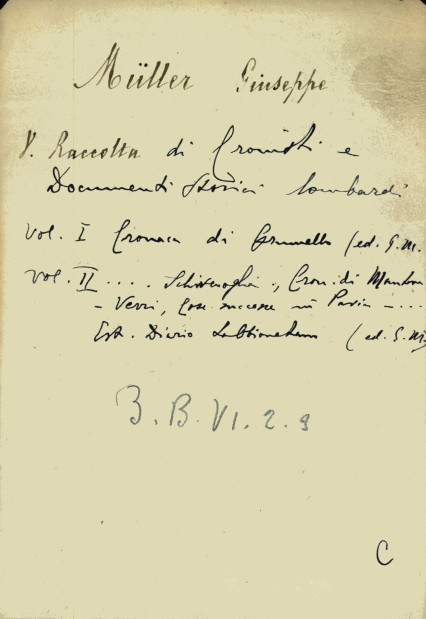 Müller Giuseppe
V. Raccolta di Cronisti e
Documenti Storici lombardi
Vol. I Cronaca di Grumello (ed. G. M.
Vol. II .... Schivenoglia, Cron. di Mantova
- Verri, Cose successe in Pavia - ...
Est. Diario Sabbionetano (ed. G. M)
3. B. VI. 2. 9
C